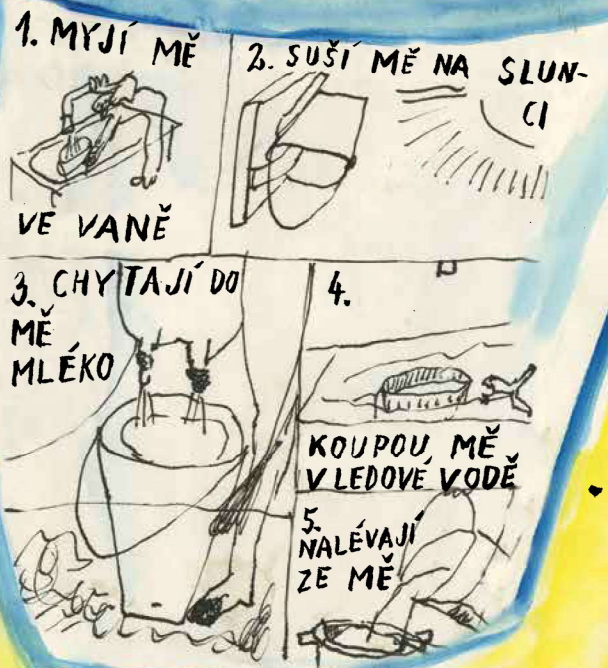 1. MYJÍ MĚ
VE VANĚ
2. SUŠÍ MĚ NA SLUN-
CI
3. CHYTAJÍ DO
MĚ
MLÉKO
4.
KOUPOU MĚ
V LEDOVÉ VODĚ
5.
NALÉVAJÍ
ZE MĚ